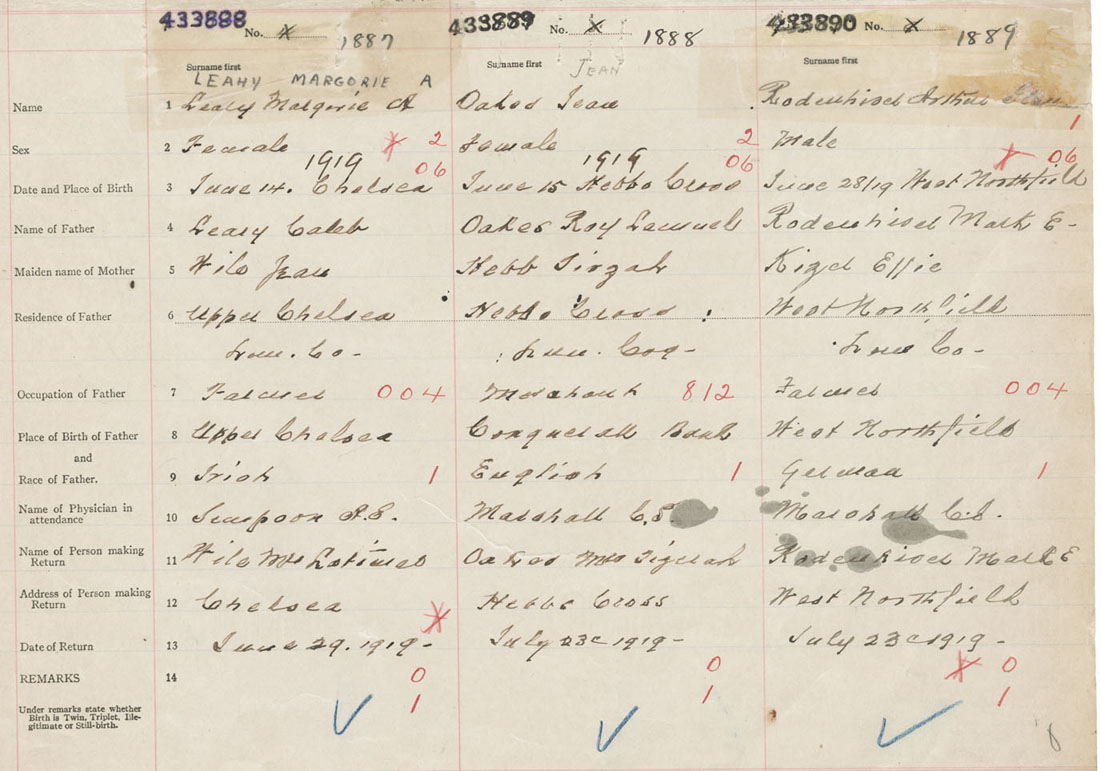 433888 No. x 1887 433889 No. x 1888 433890 No. x 1889
Surname first Surname first Surname first
LEAHY MARGORIE A JEAN
Name 1 Leahy Margorie A Oakes Jean Rodenhiser Arthur
1
Sex 2 Female x 2 Female 2 Male
1919 06 1919 06 x 06
Date and Place of Birth 3 June 14. Chelsea June 15 Hebbs Cross June 28/19 West Northfield
Name of Father 4 Leahy Caleb Oakes Roy Lemuel Rodenhiser Mark E-
Maiden name of Mother 5 Wile Jean Hebb Tirzah Effie
Residence of Father 6 Upper Chelsea Hebbs Cross West Northfield
Lun. Co- Lun. Co- Lun Co-
Occupation of Father 7 Farmer 004 Merchant 812 Farmer 004
Place of Birth of Father 8 Upper Chelsea Conquerall Bank West Northfield
and
Race of Father. 9 Irish 1 English 1 German 1
Name of Physician in
attendance 10 Simpson Marshall C.S. Marshall C.S.
Name of Person making
Return 11 Wile Mrs Latimer Oakes Mrs Tirzah Rodenhiser Mark E
Address of Person making
Return 12 Chelsea Hebbs Cross West Northfield
x
Date of Return 13 June 29. 1919- July 23 1919- July 23 1919-
REMARKS 14 0 0 x 0
Under remarks state whether
Birth is Twin, Triplet, Ille-
gitimate or Still-birth. 1 1 1